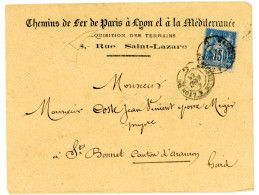 Chemins de Fer de Paris à Lyon et à la Méditerranée
ACQUISITION DES TERRAINS
4, Rue Saint-Lazare
15
Monsieur
Monsieur Coste Jean Vincent
à
St Bonnet Canton d'Aramon
Gard